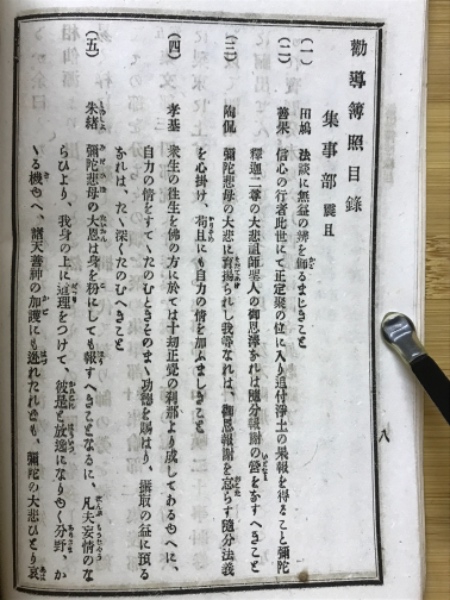 勸導簿照目錄
集事部 震旦
(一) 田鳩 法談に無益の辨を御るまじきこと
(二) 善果 信心の行者此世にて正定聚の位に入り追付淨土の果報を得ること彌陀
釋迦二尊の大悲祖師聖人の御恩澤なれは隨分報謝の營をなすへきこと
(三) 陶侃 彌陀悲母の大悲に育揚られし我等なれは、御恩報謝を怠らす隨分法義
を心掛け、苟且にも自力の情を加ふましきこと
(四) 孝基 衆生の徃生を佛の方に於ては十劫正覺の刹那より成してあるゆへに、
自力の情をすてゝたのむときそのまゝ功德を賜はり、攝取の益に預る
なれは、たゝ深くたのむへきこと
(五) 朱緒 彌陀悲母の大恩は身を粉にしても報すへきことなるに、凡夫妄情のな
らひより、我身の上に道理をつけて、彼是と放逸になりゆく分野、か
ゝる機ゆへ、諸天善神の加護にも迯れたれとも、彌陀の大悲ひとり哀
八